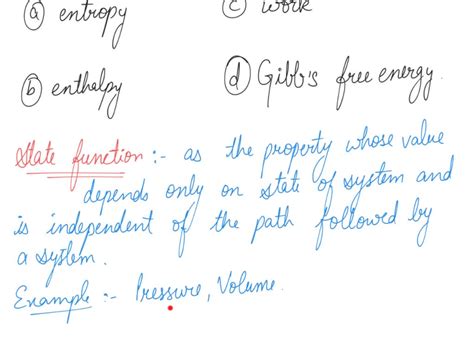 (a) entropy (c) work
(b) enthalpy (d) Gibb's free energy.
State function :- as the property whose value
depends only on state of system and
is independent of the path followed by
a system.
Example :- Pressure, Volume.